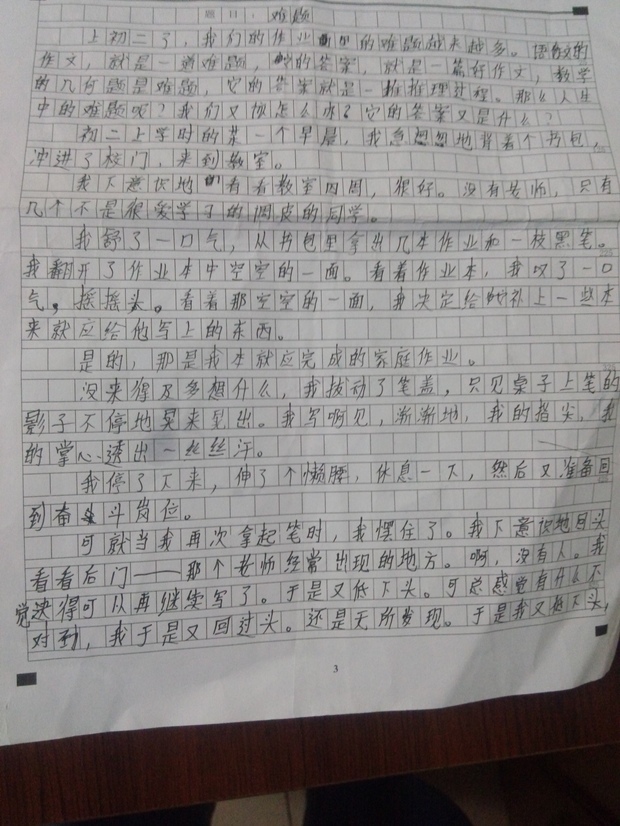 题目：难题
上初二了，我们的作业里的难题越来越多。语文的
作文，就是一道难题，的答案，就是一篇好作文，数学
的几何题是难题，它的答案就是一推推理过程。那么人生
中的难题呢？我们又该怎么办？它的答案又是什么？
初二上学时的某一个早晨，我急忽忽地背着个书包，
冲进了校门，来到教室。
我下意识地看看教室四周，很好。没有老师，只有
几个不是很爱学习的调皮的同学。
我舒了一口气，从书包里拿出几本作业和一枝黑笔。
我翻开了作业本中空空的一面。看着作业本，我叹了一口
气，摇摇头。看着那空空的一面，我决定给她补上一些本
来就应给他写上的东西。
是的，那是我本就应完成的家庭作业。
没来得及多想什么，我拔动了笔盖，只见桌子上笔的
影子不停地晃来晃出。我写啊见，渐渐地，我的指尖，我
的掌心透出一丝丝汗。
我停了下来，伸了个懒腰，休息一下，然后又准备回
到奋斗岗位。
可就当我再次拿起笔时，我愣住了。我下意识地回头
看看后门——那个老师经常出现的地方。啊，没有人。我
觉得可以再继续写了。于是又低下头。可总感觉有什么不
对劲，我于是又回过头。还是无所发现。于是我又低下头，
3